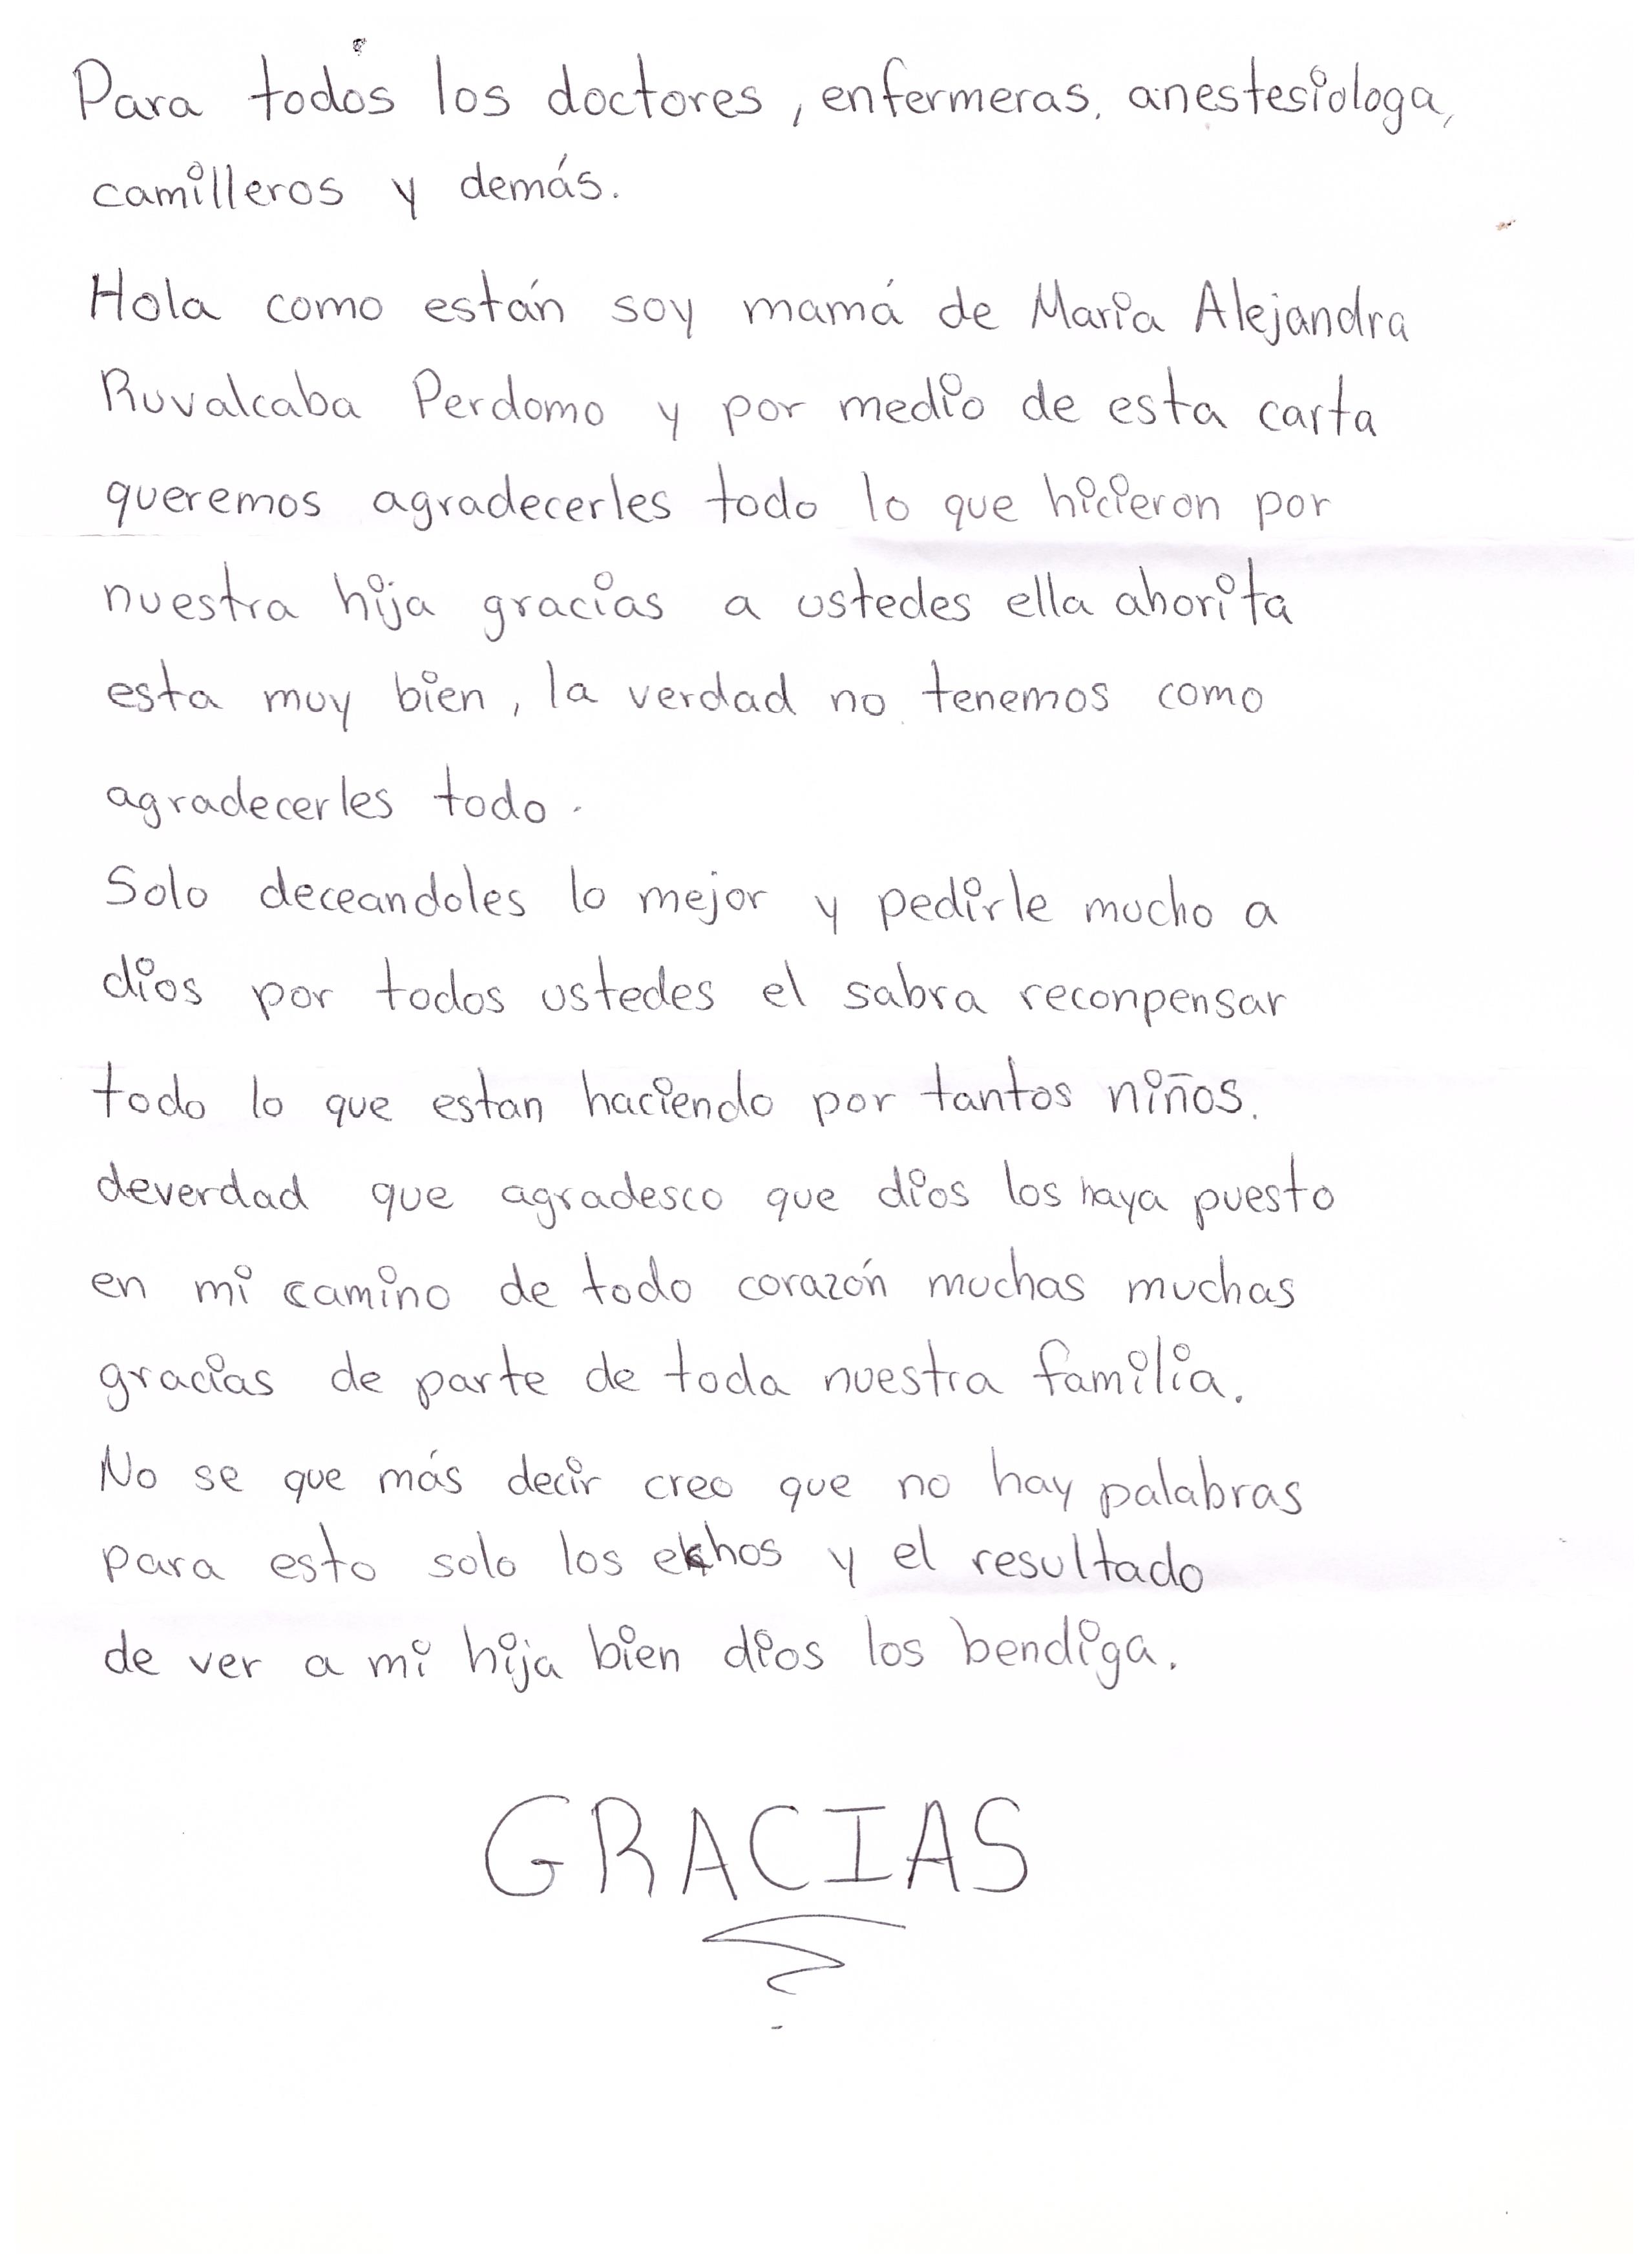 Para todos los doctores, enfermeras, anestesiologa,
camilleros y demás.
Hola como están soy mamá de Maria Alejandra
Ruvalcaba Perdomo y por medio de esta carta
queremos agradecerles todo lo que hicieron por
nuestra hija gracias a ustedes ella ahorita
esta muy bien, la verdad no tenemos como
agradecerles todo.
Solo deceandoles lo mejor y pedirle mucho a
dios por todos ustedes el sabra reconpensar
todo lo que estan haciendo por tantos niños.
deverdad que agradesco que dios los haya puesto
en mi camino de todo corazón muchas muchas
gracias de parte de toda nuestra familia.
No se que más decir creo que no hay palabras
para esto solo los y el resultado
de ver a mi hija bien dios los bendiga.
GRACIAS